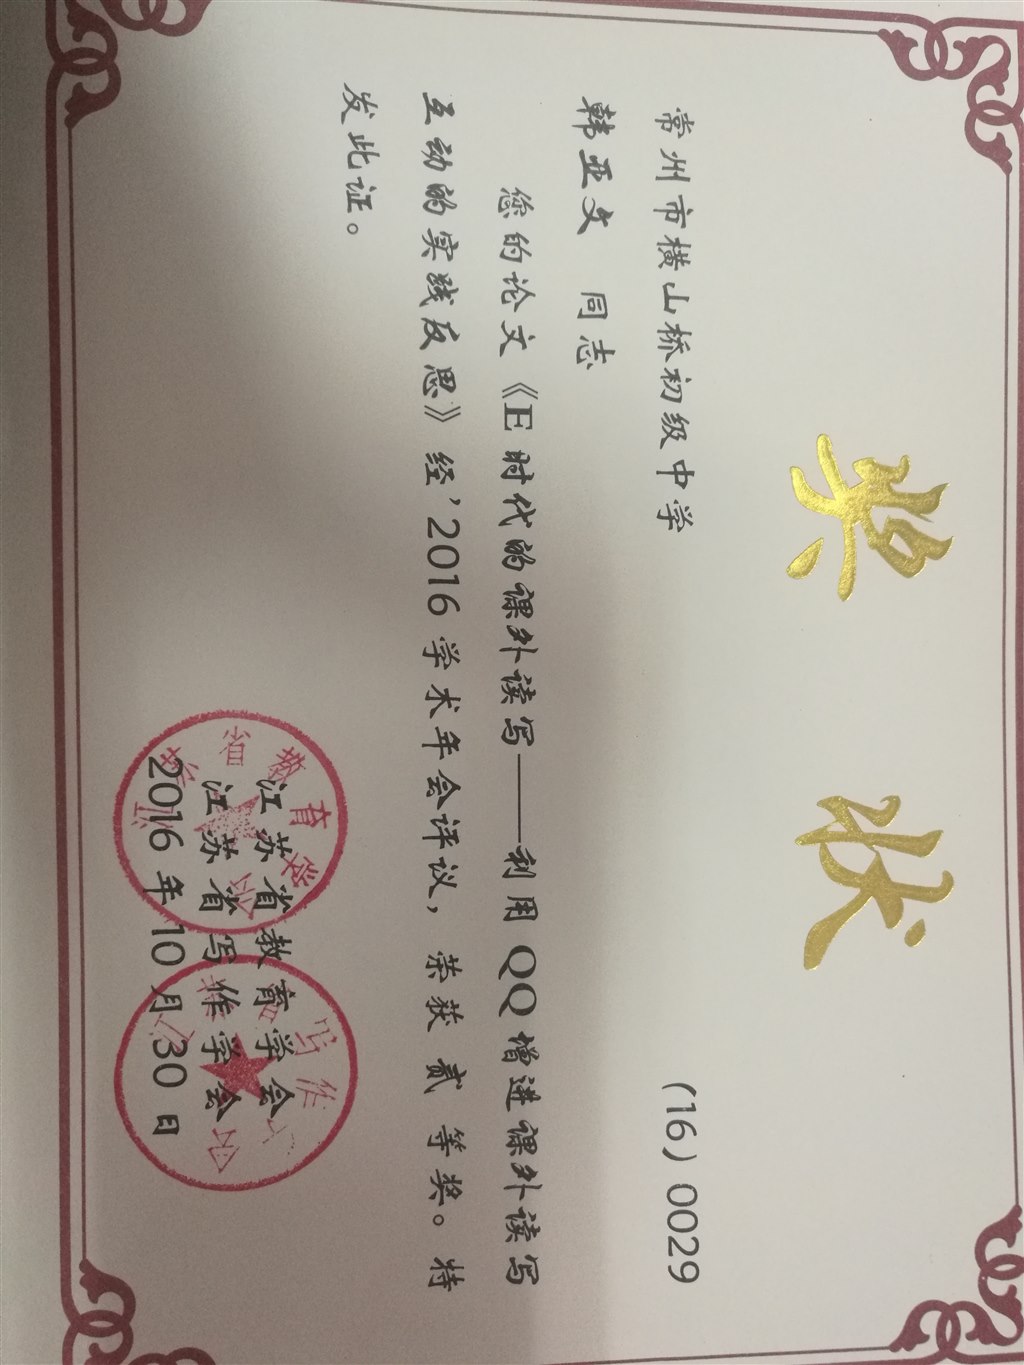 奖 状
(16) 0029
常州市横山桥初级中学
韩亚文 同志
您的论文《E时代的课外读写——利用QQ增进课外读写
互动的实践反思》经'2016学术年会评议，荣获 贰 等奖。特
发此证。
江苏省教育学会
江苏省写作学会
2016年10月30日